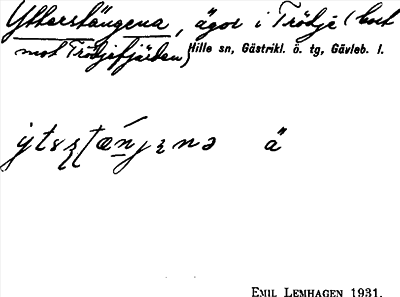 Ytterstängena, ägor i Trödje (bort
mot Trödjefjärden) Hille sn, Gästrikl. ö. tg, Gävleb. l.
ä
EMIL LEMHAGEN 1931.